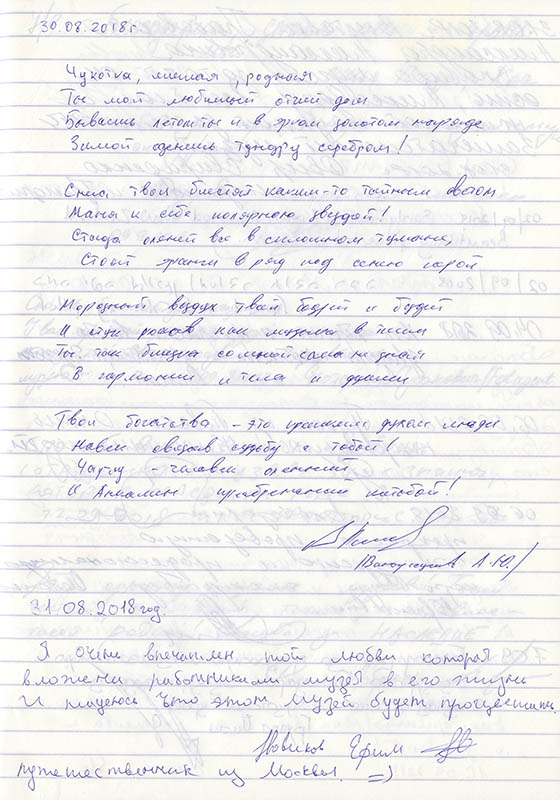 30.08.2018г.
Чукотка, милая, родная
Ты мой любимый отчий дом
Бываешь летом ты и в ярком золотом наряде
Зимой оденешь тундру серебром!
Снега твои блестят каким-то тайным светом
Маня к себе полярною звездой!
Стада оленей все в сплошном тумане,
Стоят яранги в ряд под сенью
Морозный воздух твой бодрит и будит
И стук рогов как музыка в
Ты так близка со мной сама не зная
В гармонии и тела и души
Твои богатства - это крепкие духом люди
Навек связав судьбу с тобой!
Чавчу - человек оленный
И Анкалын прибрежный
А.Ю./
31.08.2018 год.
Я очень впечатлен той любви которая
вложена работниками музея в его жизни
И надеюсь что этот музей будет процветать
Новиков Ефим
путешественник из Москвы. =)